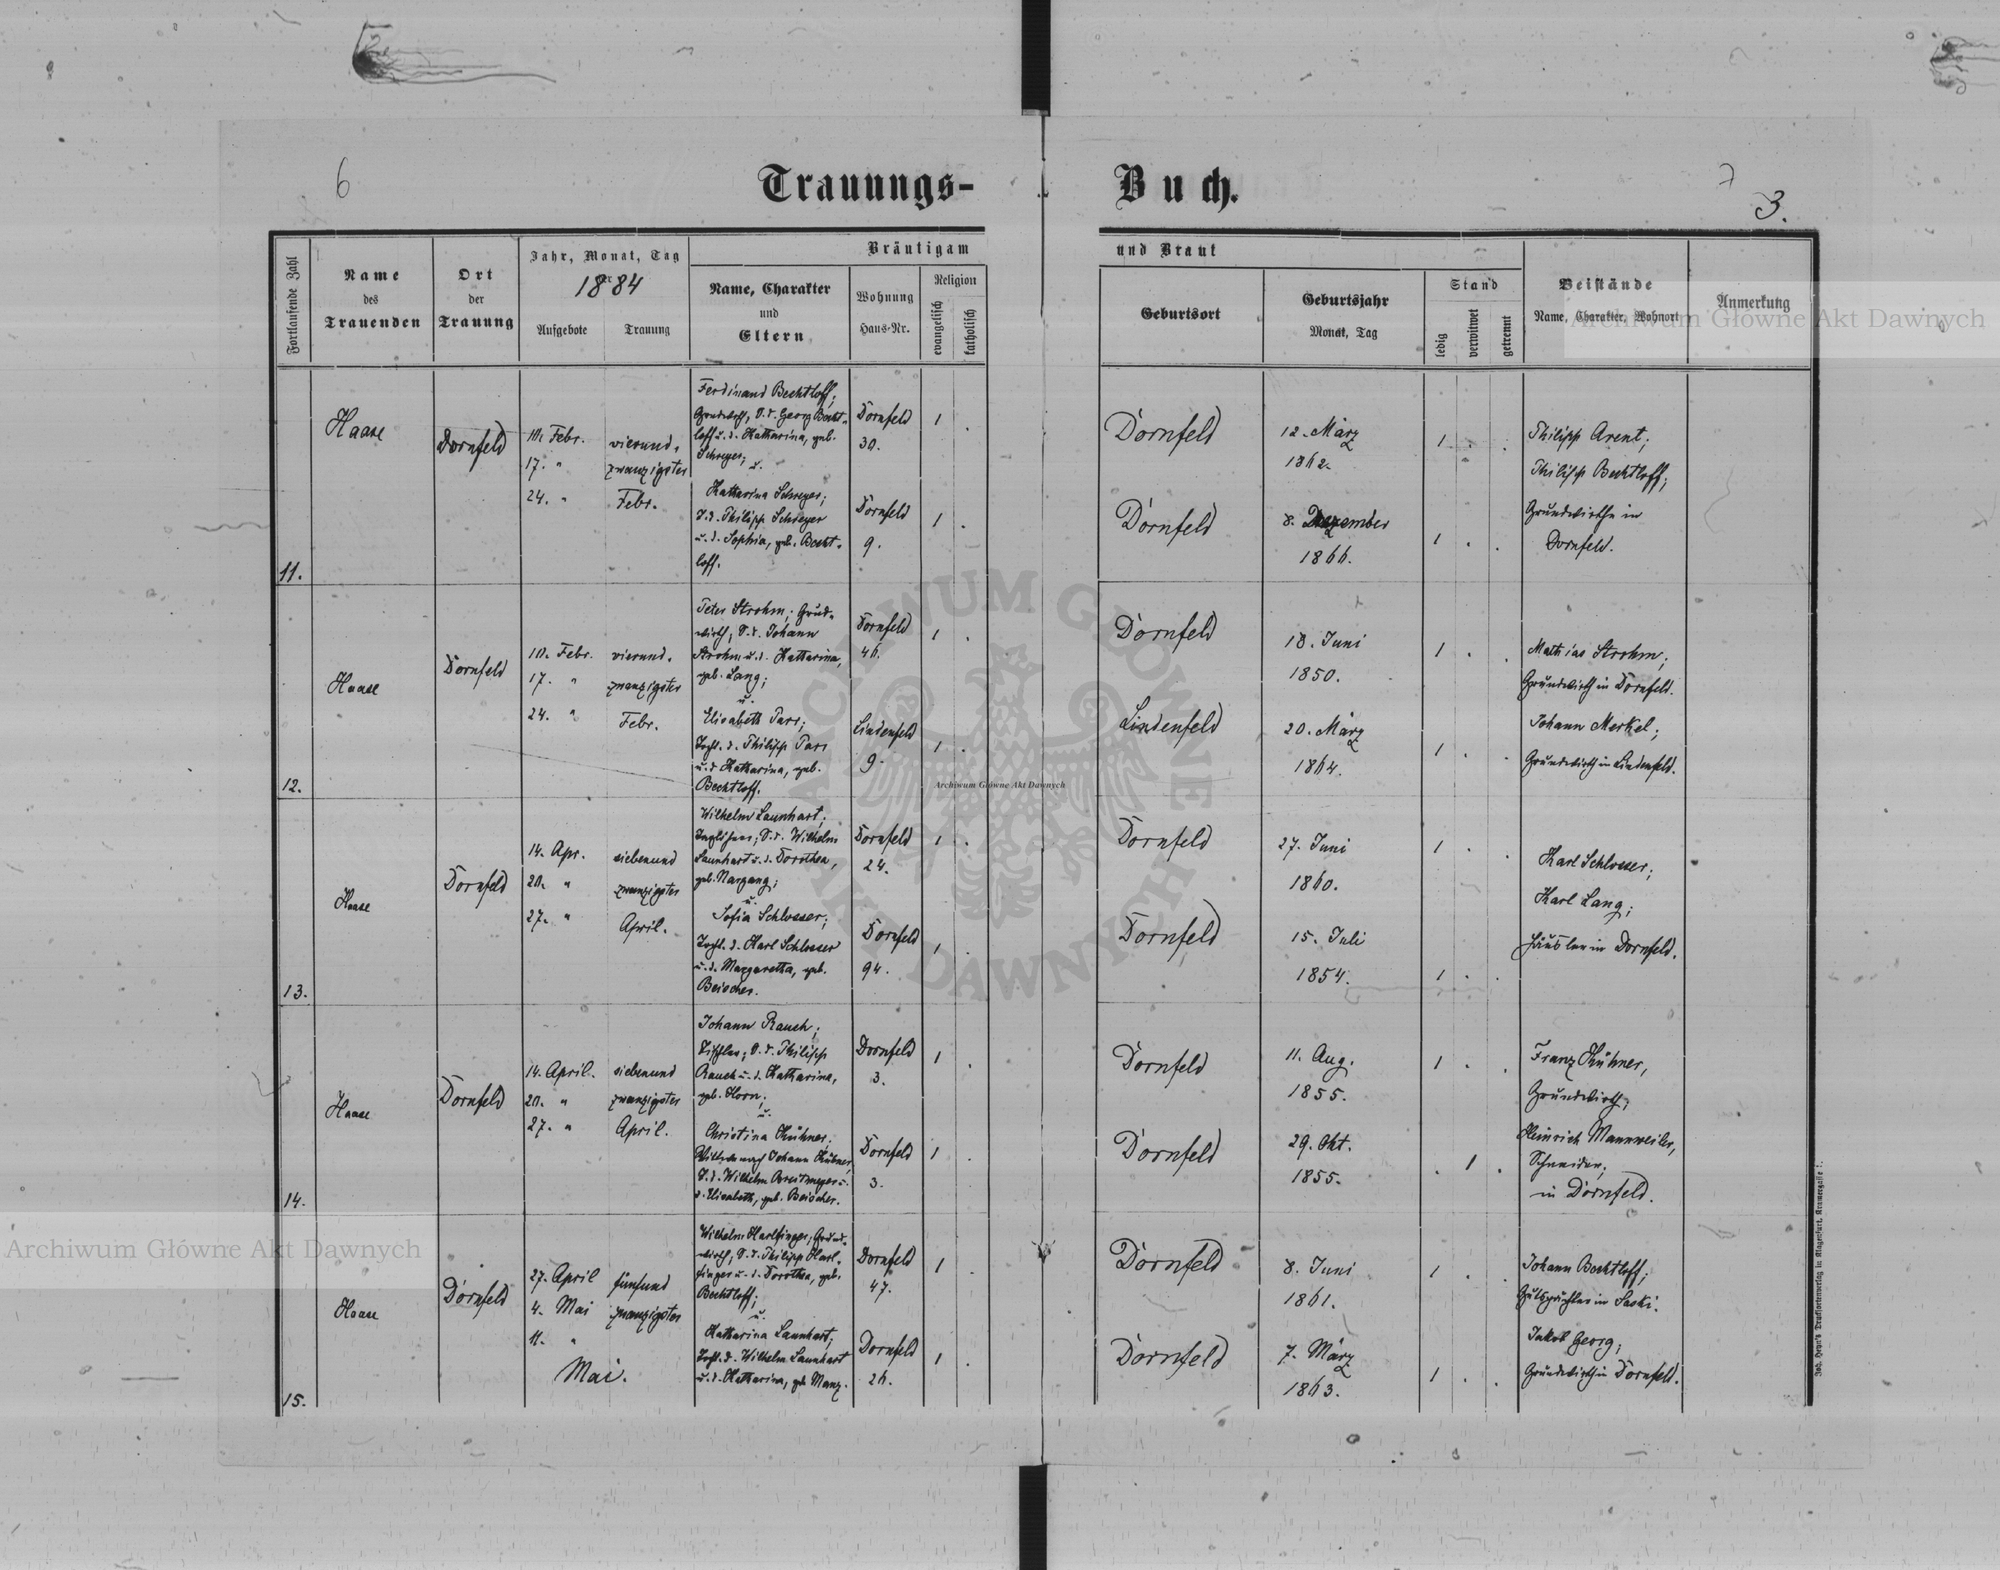 6
Trauungs-
Buch.
7
3.
Fortlaufende Zahl
Name
des
Trauenden
Ort
der
Trauung
Jahr, Monat, Tag
1884
Aufgebote
Trauung
Bräutigam
Name, Charakter
und
Eltern
Wohnung
Haus-Nr.
Religion
evangelisch
katholisch
und Braut
Geburtsort
Geburtsjahr
Monat, Tag
Stand
ledig
verwitwet
getrennt
Beistände
Name, Charakter, Wohnort
Anmerkung
Archiwum Główne Akt Dawnych
11.
Haase
Dornfeld
10. Febr.
17. "
24. "
vierund-
zwanzigster
Febr.
Ferdinand Bechtloff;
Grundwirth, S. d. Georg Becht-
loff u. d. Katharina, geb.
Schreyer;
u.
Katharina Schreyer;
T. d. Philipp Schreyer
u. d. Sophia, geb. Becht-
loff.
Dornfeld
30.
1
Dornfeld
9.
1
Dornfeld
12. März
1862.
1
Dornfeld
8. Dezember
1866.
1
Philipp Arent;
Philipp Bechtloff;
Grundwirthe in
Dornfeld.
12.
Haase
Dornfeld
10. Febr.
17. "
24. "
vierund-
zwanzigster
Febr.
Peter Strohm; Grund-
wirth, S. d. Johann
Strohm u. d. Katharina,
geb. Lang;
u.
Elisabeth Parr;
Tocht. d. Philipp Parr
u. d. Katharina, geb.
Bechtloff.
Dornfeld
46.
1
Lindenfeld
9.
1
Dornfeld
18. Juni
1850.
1
Lindenfeld
20. März
1864.
1
Mathias Strohm;
Grundwirth in Dornfeld.
Johann Merkel;
Grundwirth in Lindenfeld.
13.
Haase
Dornfeld
14. Apr.
20. "
27. "
siebenund
zwanzigster
April.
Wilhelm Launhart;
S. d. Wilhelm
Launhart u. d. Dorothea,
geb. Nargang;
u.
Sofia Schlosser;
Tocht. d. Karl Schlosser
u. d. Margaretha, geb.
Beischer.
Dornfeld
24.
1
Dornfeld
94.
1
Dornfeld
27. Juni
1860.
1
Dornfeld
15. Juli
1854.
1
Karl Schlosser;
Karl Lang;
Häusler in Dornfeld.
14.
Haase
Dornfeld
14. April.
20. "
27. "
siebenund
zwanzigster
April.
Johann Rauch;
Tischler; S. d. Philipp
Rauch u. d. Katharina,
geb. Horn;
u.
Christina Kühner;
Wittwe nach Johann Kühner,
T. d. Wilhelm Breitmeyer u.
d. Elisabeth, geb. Beischer.
Dornfeld
3.
1
Dornfeld
3.
1
Dornfeld
11. Aug.
1855.
1
Dornfeld
29. Okt.
1855.
1
Franz Kühner,
Grundwirth;
Heinrich Mannweiler,
Schneider;
in Dornfeld.
15.
Haase
Dornfeld
27. April
4. Mai
11. "
fünfund
zwanzigster
Mai.
Wilhelm Harlfinger; Grund-
wirth; S. d. Philipp Harl-
finger u. d. Dorothea, geb.
Bechtloff;
u.
Katharina Launhart;
Tocht. d. Wilhelm Launhart
u. d. Katharina, geb. Manz.
Dornfeld
47.
1
Dornfeld
26.
1
Dornfeld
8. Juni
1861.
1
Dornfeld
7. März
1863.
1
Johann Bechtloff;
Gutspächter in Saski.
Jakob Georg;
Grundwirth in Dornfeld.
Archiwum Główne Akt Dawnych
ARCHIWUM GŁÓWNE AKT DAWNYCH
Archiwum Główne Akt Dawnych